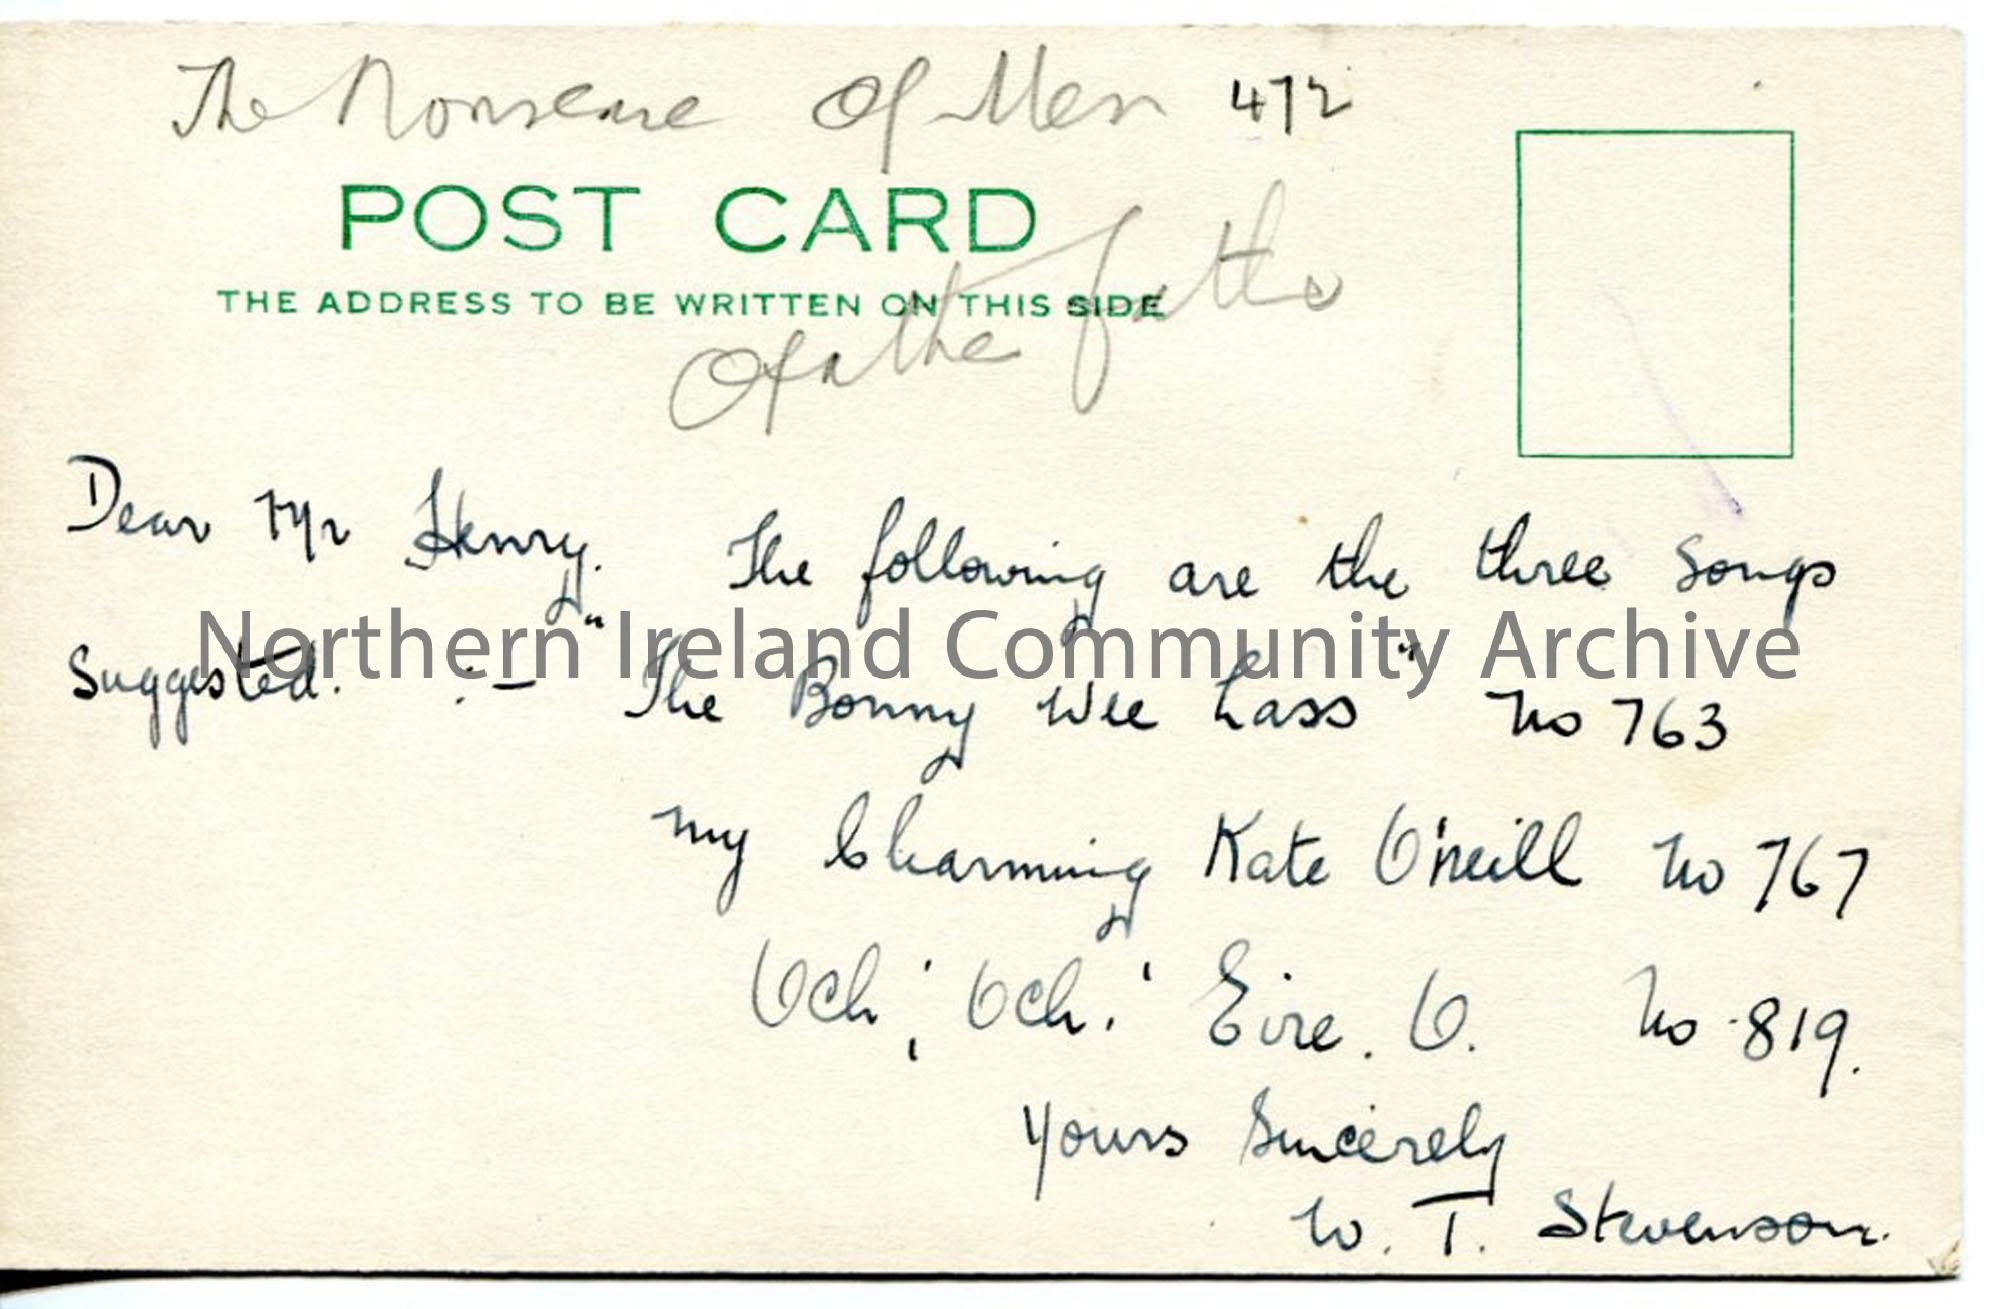 The Nonsense Of Men 472
POST CARD
THE ADDRESS TO BE WRITTEN ON THIS SIDE
Of the
Dear Mr Henry. The following are the three songs
Northern Ireland Community Archive
Suggested. :- "The Bonny Wee Lass" No 763
My Charming Kate O'neill No 767
Och; Och! Eire. O. No. 819.
Yours Sincerely
W. T. Stevenson.